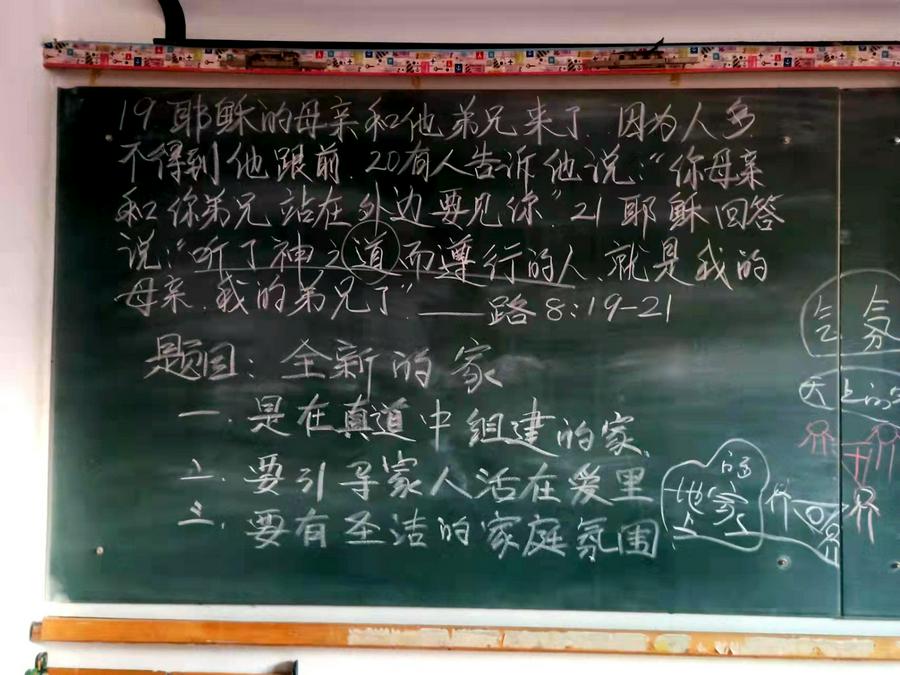 19 耶稣的母亲和他弟兄来了.因为人多
不得到他跟前.20有人告诉他说:“你母亲
和你弟兄站在外边要见你”21 耶稣回答
说:“听了神之道而遵行的人、就是我的
母亲.我的弟兄了”——路8:19-21
题目: 全新的家
一.是在真道中组建的家.
二.要引导家人活在爱里
三.要有圣洁的家庭氛围
地上的家
天上的家